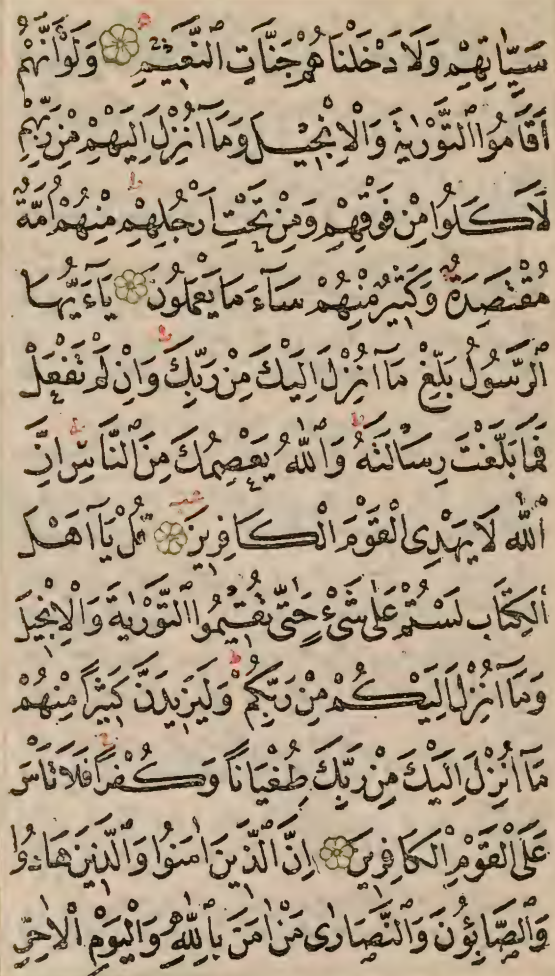 سَيِّاٰتِهِمْ وَلَاَدْخَلْنَاهُمْ جَنَّاتِ النَّعٖيمِ وَلَوْ اَنَّهُمْ
اَقَامُوا التَّوْرٰيةَ وَالْاِنْجٖيلَ وَمَٓا اُنْزِلَ اِلَيْهِمْ مِنْ رَبِّهِمْ
لَاَكَلُوا مِنْ فَوْقِهِمْ وَمِنْ تَحْتِ اَرْجُلِهِمْ مِنْهُمْ اُمَّةٌ
مُقْتَصِدَةٌ وَكَثٖيرٌ مِنْهُمْ سَٓاءَ مَا يَعْمَلُونَ يَٓا اَيُّهَا
الرَّسُولُ بَلِّغْ مَٓا اُنْزِلَ اِلَيْكَ مِنْ رَبِّكَ وَاِنْ لَمْ تَفْعَلْ
فَمَا بَلَّغْتَ رِسَالَتَهُ وَاللّٰهُ يَعْصِمُكَ مِنَ النَّاسِ اِنَّ
اللّٰهَ لَا يَهْدِى الْقَوْمَ الْكَافِرٖينَ قُلْ يَٓا اَهْلَ
الْكِتَابِ لَسْتُمْ عَلٰى شَىْءٍ حَتّٰى تُقٖيمُوا التَّوْرٰيةَ وَالْاِنْجٖيلَ
وَمَٓا اُنْزِلَ اِلَيْكُمْ مِنْ رَبِّكُمْ وَلَيَزٖيدَنَّ كَثٖيرًا مِنْهُمْ
مَٓا اُنْزِلَ اِلَيْكَ مِنْ رَبِّكَ طُغْيَانًا وَكُفْرًا فَلَا تَاْسَ
عَلَى الْقَوْمِ الْكَافِرٖينَ اِنَّ الَّذٖينَ اٰمَنُوا وَالَّذٖينَ هَادُوا
وَالصَّابِؤُنَ وَالنَّصَارٰى مَنْ اٰمَنَ بِاللّٰهِ وَالْيَوْمِ الْاٰخِرِ